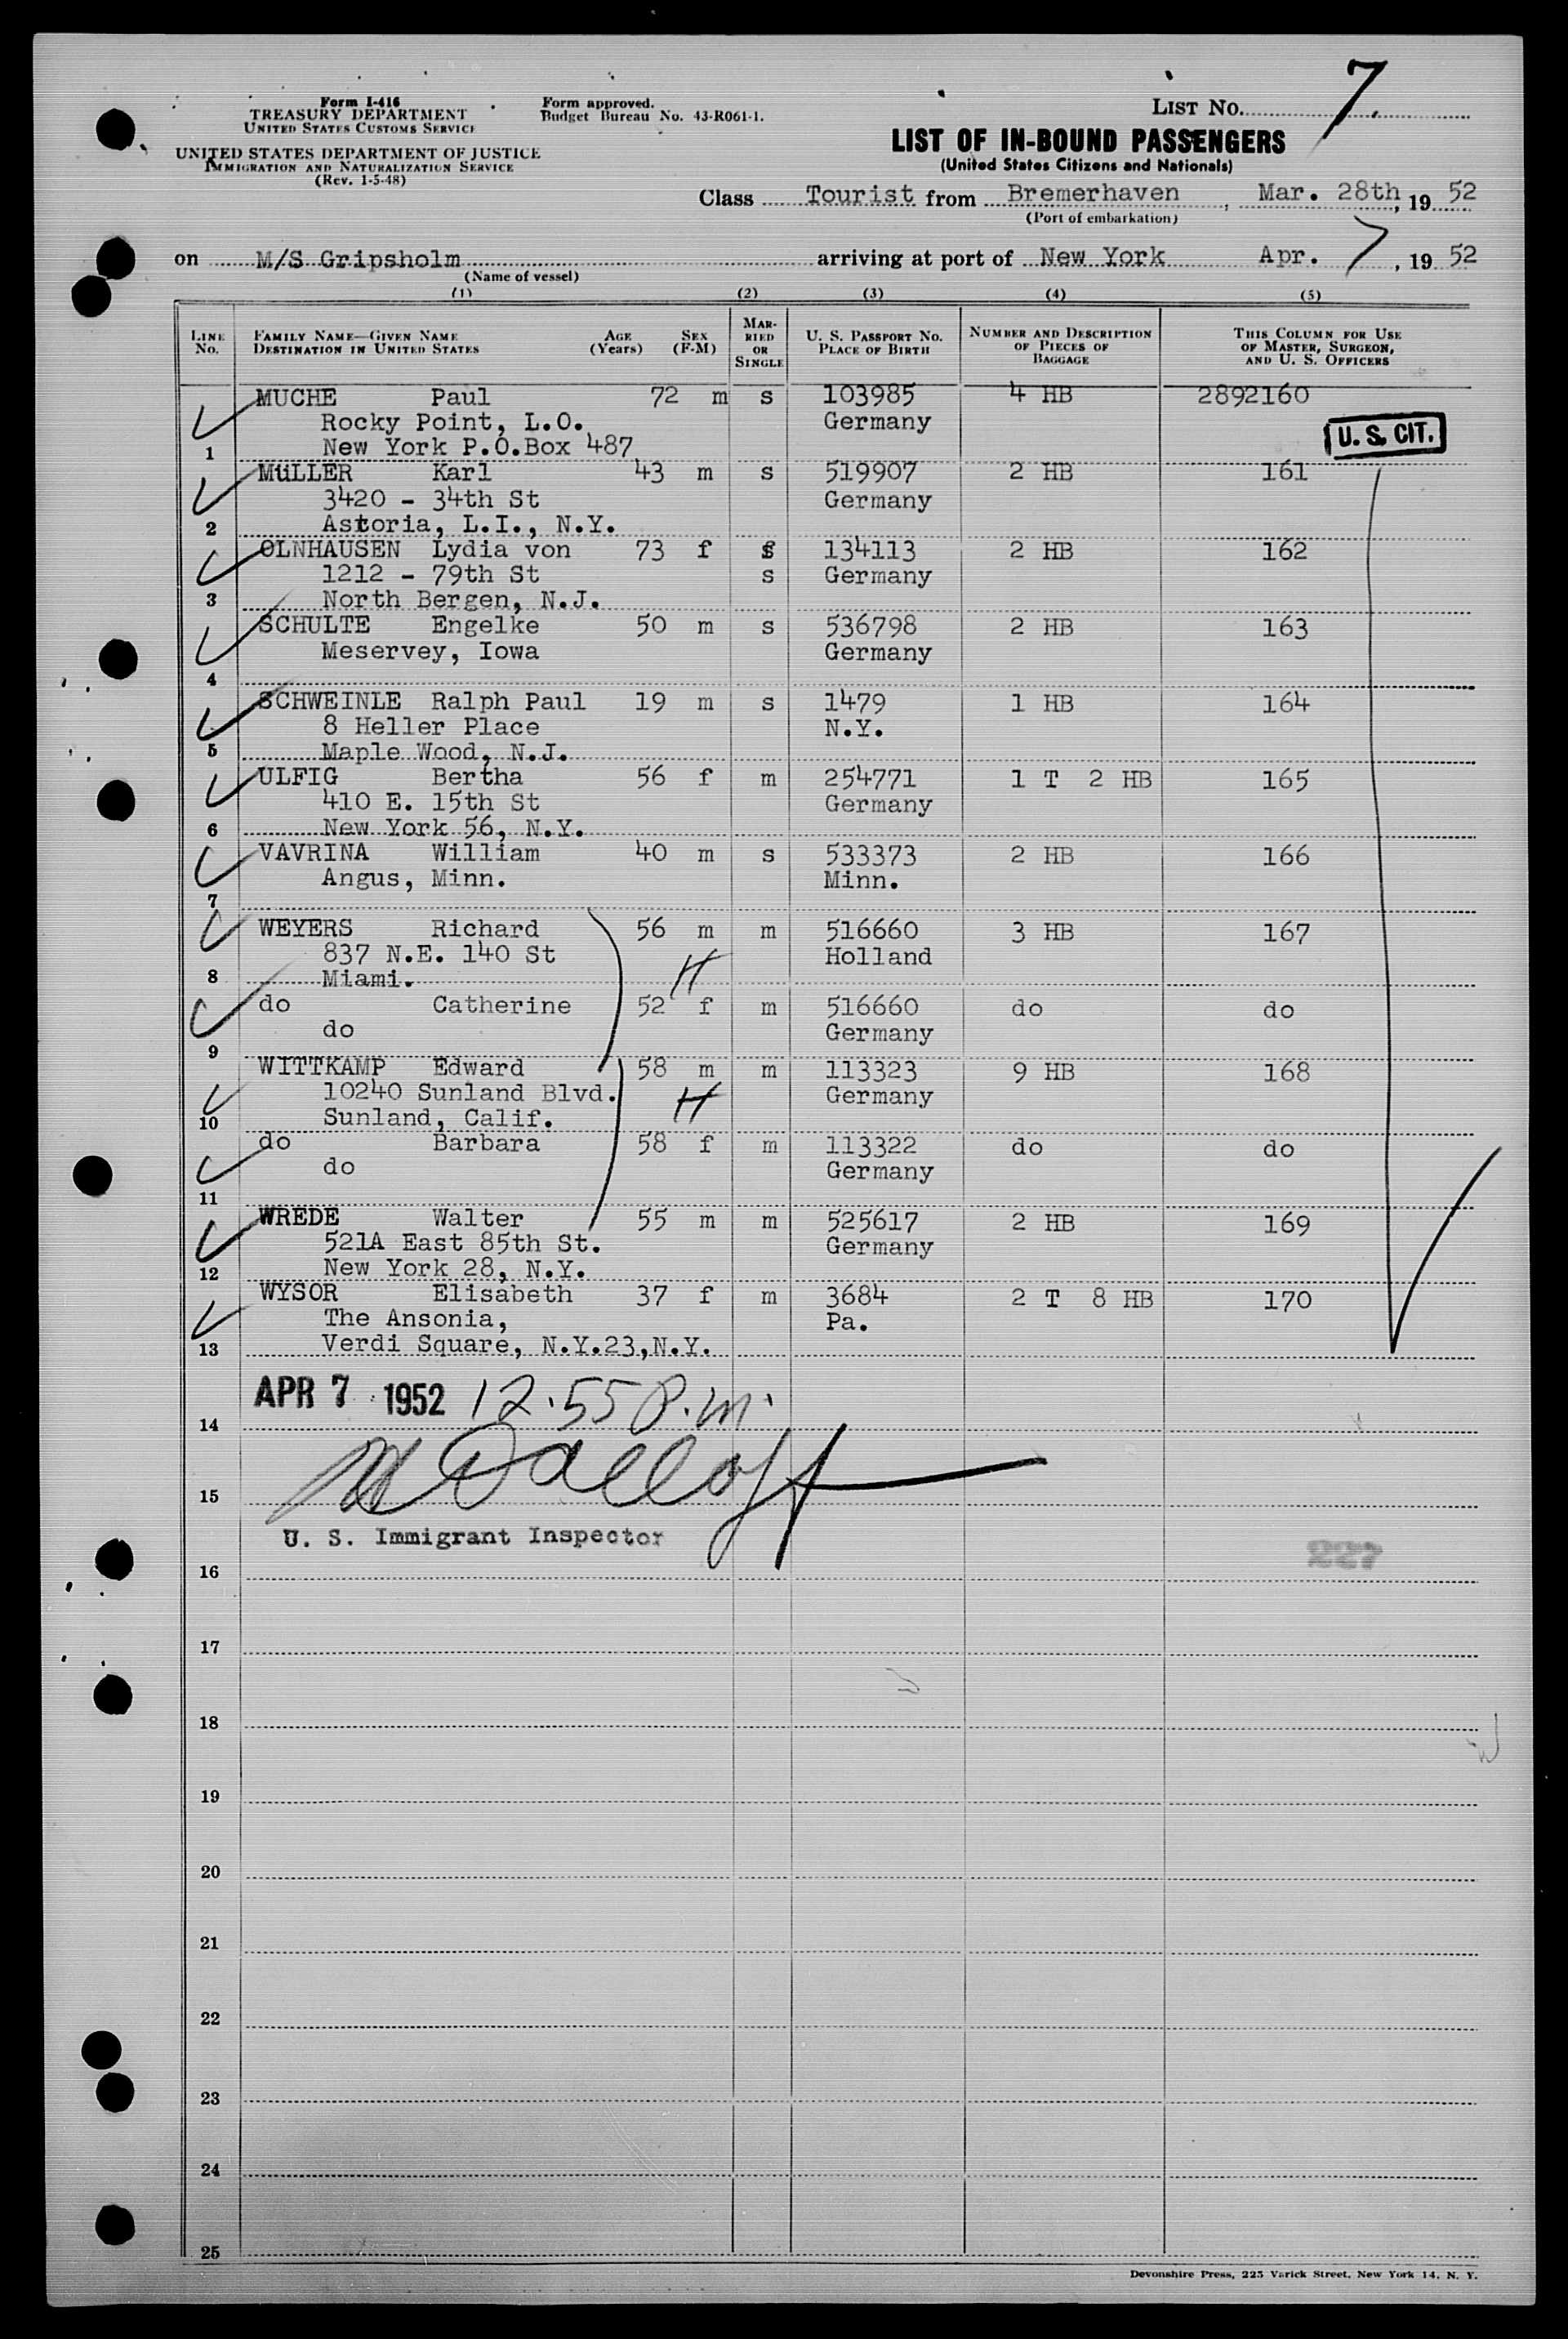 Form I-416
TREASURY DEPARTMENT
UNITED STATES CUSTOMS SERVICE
UNITED STATES DEPARTMENT OF JUSTICE
IMMIGRATION AND NATURALIZATION SERVICE
(Rev. 1-5-48)
Form approved.
Budget Bureau No. 43-R061-1.
LIST NO. 7
LIST OF IN-BOUND PASSENGERS
(United States Citizens and Nationals)
Class Tourist from Bremerhaven, Mar. 28th, 19 52
(Port of embarkation)
on M/S Gripsholm arriving at port of New York Apr. 7, 19 52
(Name of vessel)
(1) (2) (3) (4) (5)
LINE No. FAMILY NAME—GIVEN NAME DESTINATION IN UNITED STATES AGE (Years) SEX (F-M) MARRIED OR SINGLE U. S. PASSPORT NO. PLACE OF BIRTH NUMBER AND DESCRIPTION OF PIECES OF BAGGAGE THIS COLUMN FOR USE OF MASTER, SURGEON, AND U. S. OFFICERS
MUCHE Paul 72 m s 103985 4 HB 2892160
Rocky Point, L.O. Germany U. S. CIT.
1 New York P.O.Box 487
MüLLER Karl 43 m s 519907 2 HB 161
3420 - 34th St Germany
2 Astoria, L.I., N.Y.
OLNHAUSEN Lydia von 73 f 134113 2 HB 162
1212 - 79th St s Germany
3 North Bergen, N.J.
SCHULTE Engelke 50 m s 536798 2 HB 163
Meservey, Iowa Germany
4
SCHWEINLE Ralph Paul 19 m s 1479 1 HB 164
8 Heller Place N.Y.
5 Maple Wood, N.J.
ULFIG Bertha 56 f m 254771 1 T 2 HB 165
410 E. 15th St Germany
6 New York 56, N.Y.
VAVRINA William 40 m s 533373 2 HB 166
Angus, Minn. Minn.
7
WEYERS Richard 56 m m 516660 3 HB 167
837 N.E. 140 St H Holland
8 Miami.
do Catherine 52 f m 516660 do do
do Germany
9
WITTKAMP Edward 58 m m 113323 9 HB 168
10240 Sunland Blvd. H Germany
10 Sunland, Calif.
do Barbara 58 f m 113322 do do
do Germany
11
WREDE Walter 55 m m 525617 2 HB 169
521A East 85th St. Germany
12 New York 28, N.Y.
WYSOR Elisabeth 37 f m 3684 2 T 8 HB 170
The Ansonia, Pa.
13 Verdi Square, N.Y.23,N.Y.
APR 7 1952 12.55 P.m.
14
15
U. S. Immigrant Inspector
227
16
17
18
19
20
21
22
23
24
25
Devonshire Press, 225 Varick Street, New York 14, N. Y.